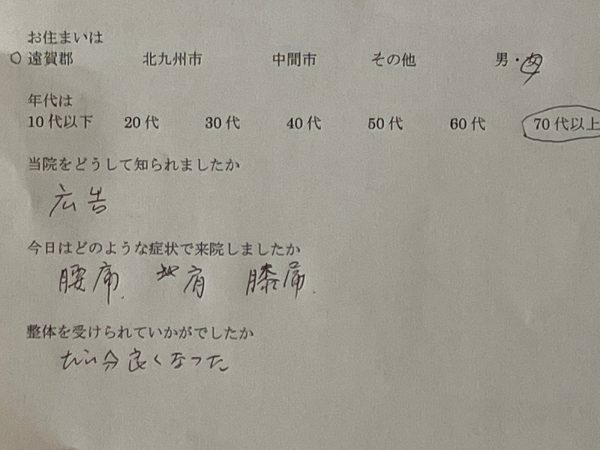 お住まいは
○遠賀郡 北九州市 中間市 その他 男・女
年代は
10代以下 20代 30代 40代 50代 60代 70代以上
当院をどうして知られましたか
広告
今日はどのような症状で来院しましたか
腰痛 肩 膝痛
整体を受けられていかがでしたか
だい分良くなった